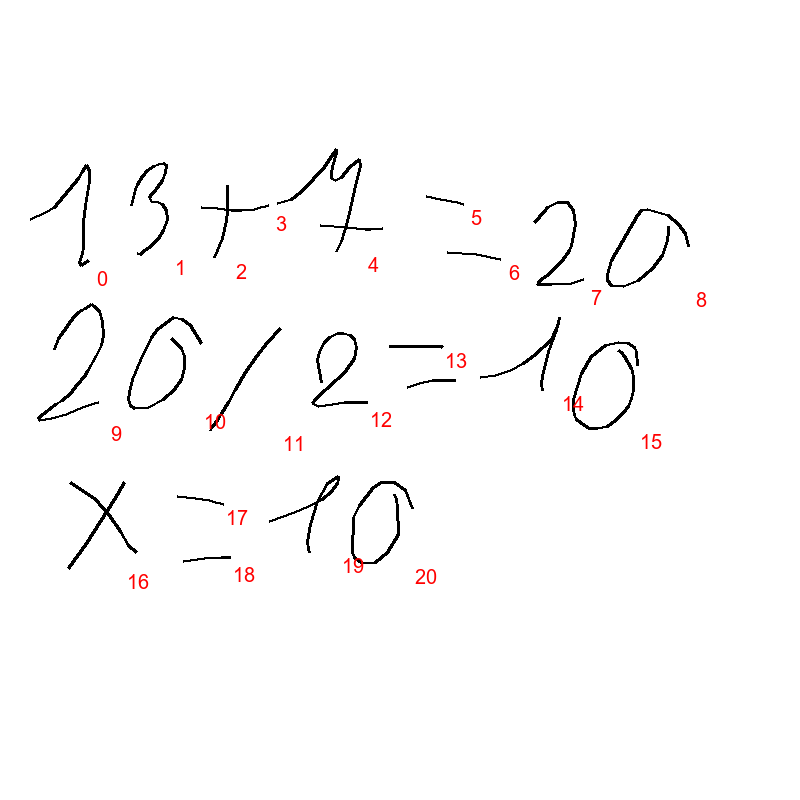 13+7=20
0 1 2 3 4 5 6 7 8
20/2=10
9 10 11 12 13 14 15
x=10
16 17 18 19 20